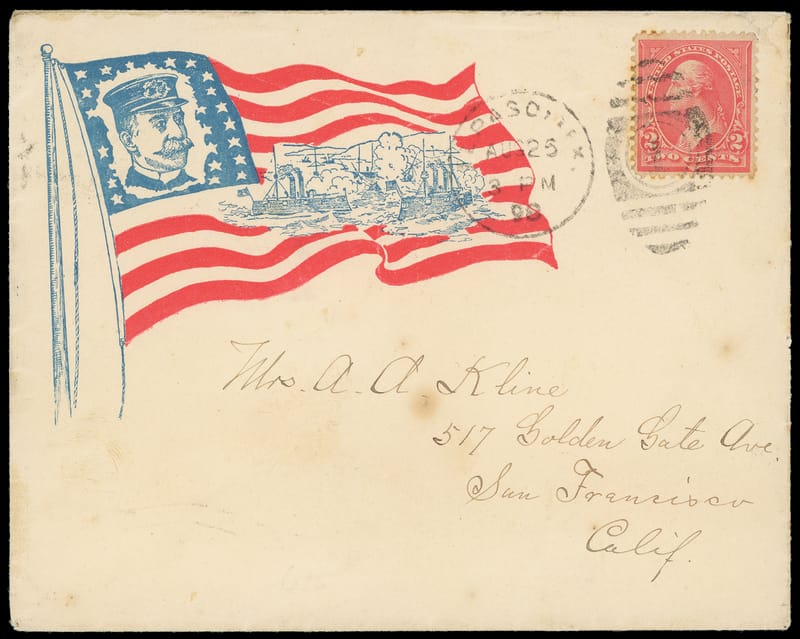 UNITED STATES POSTAGE
2 2
TWO CENTS
AUG 25
3 PM
98
Mrs. A. A. Kline
517 Golden Gate Ave.
San Francisco
Calif.